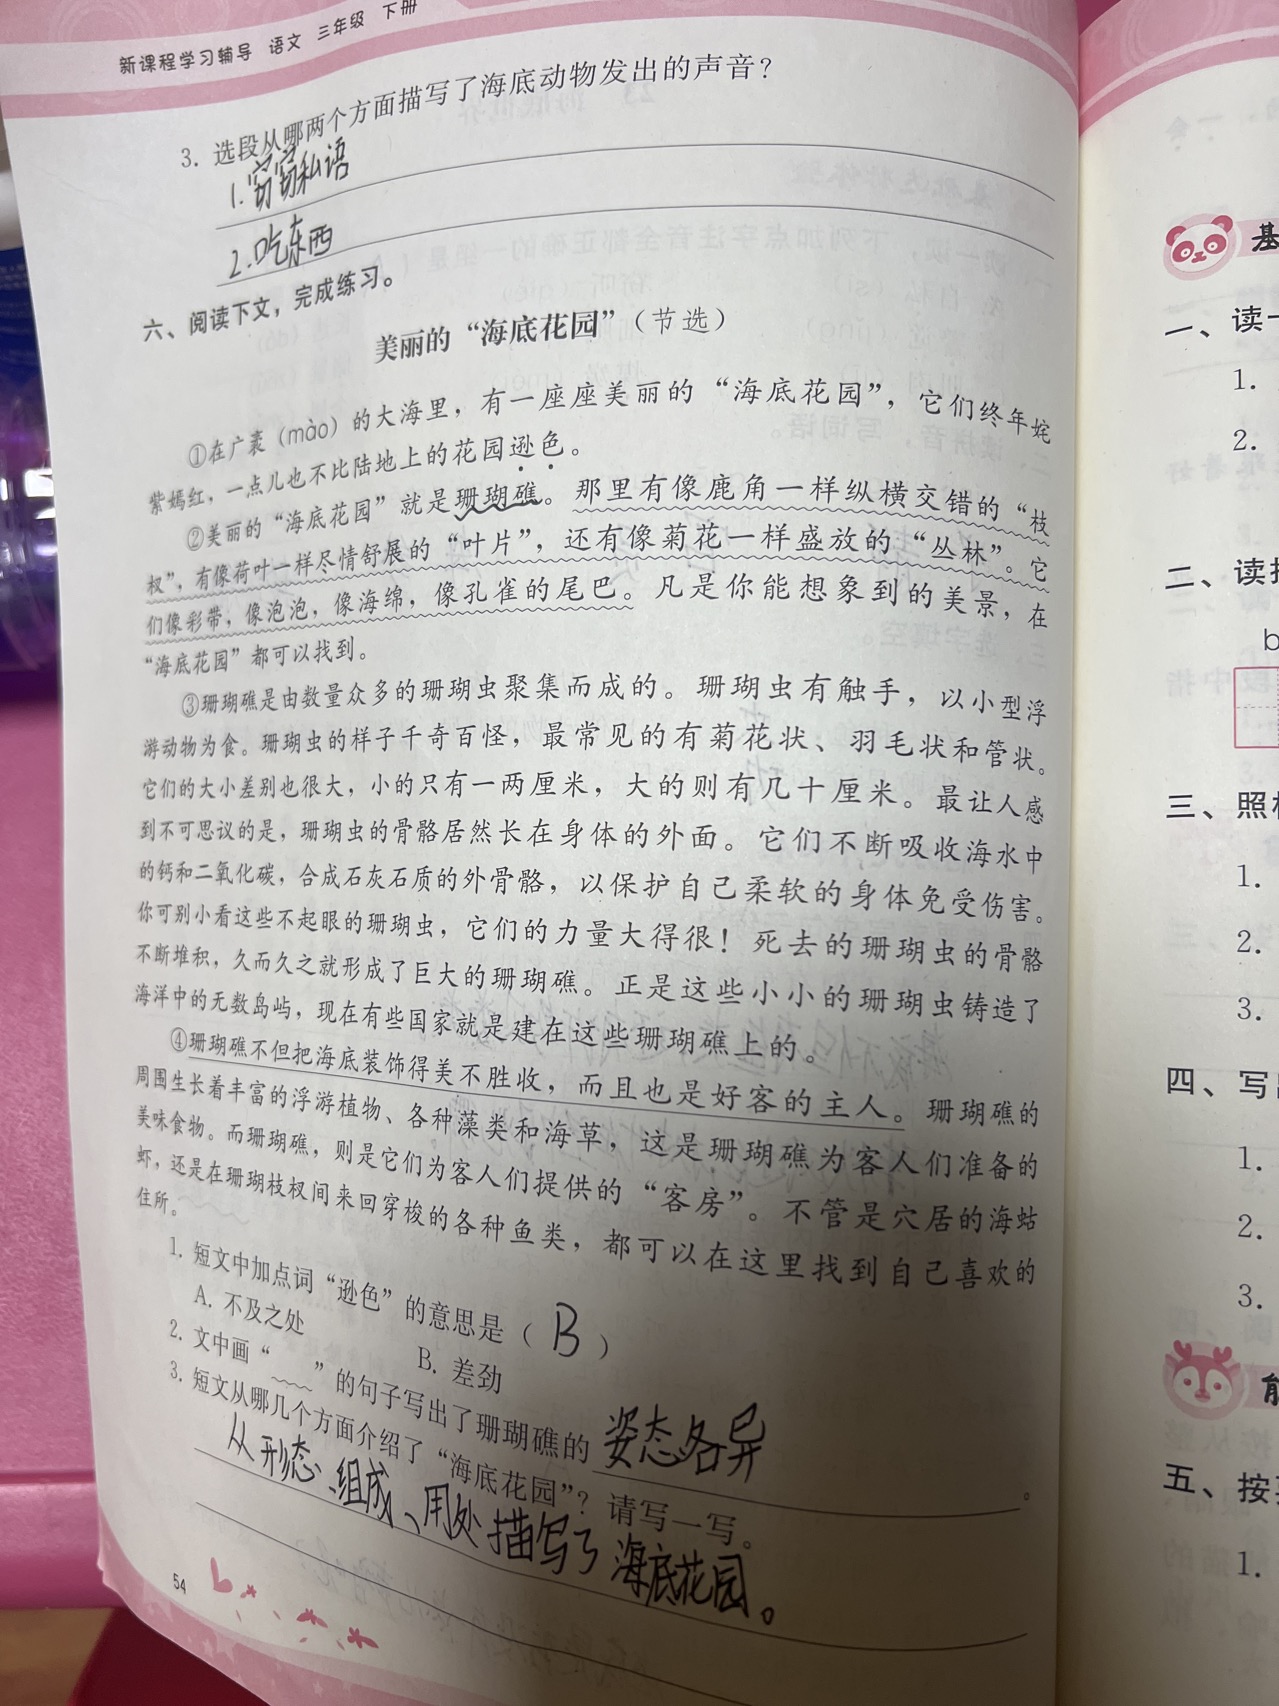 新课程学习辅导 语文 三年级 下册
3. 选段从哪两个方面描写了海底动物发出的声音？
1.窃窃私语
2.吃东西
六、阅读下文，完成练习。
美丽的“海底花园”（节选）
①在广袤（mào）的大海里，有一座座美丽的“海底花园”，它们终年姹
紫嫣红，一点儿也不比陆地上的花园逊色。
②美丽的“海底花园”就是珊瑚礁。那里有像鹿角一样纵横交错的“枝
杈”，有像荷叶一样尽情舒展的“叶片”，还有像菊花一样盛放的“丛林”。它
们像彩带，像泡泡，像海绵，像孔雀的尾巴。凡是你能想象到的美景，在
“海底花园”都可以找到。
③珊瑚礁是由数量众多的珊瑚虫聚集而成的。珊瑚虫有触手，以小型浮
游动物为食。珊瑚虫的样子千奇百怪，最常见的有菊花状、羽毛状和管状。
它们的大小差别也很大，小的只有一两厘米，大的则有几十厘米。最让人感
到不可思议的是，珊瑚虫的骨骼居然长在身体的外面。它们不断吸收海水中
的钙和二氧化碳，合成石灰石质的外骨骼，以保护自己柔软的身体免受伤害。
你可别小看这些不起眼的珊瑚虫，它们的力量大得很！死去的珊瑚虫的骨骼
不断堆积，久而久之就形成了巨大的珊瑚礁。正是这些小小的珊瑚虫铸造了
海洋中的无数岛屿，现在有些国家就是建在这些珊瑚礁上的。
④珊瑚礁不但把海底装饰得美不胜收，而且也是好客的主人。珊瑚礁的
周围生长着丰富的浮游植物、各种藻类和海草，这是珊瑚礁为客人们准备的
美味食物。而珊瑚礁，则是它们为客人们提供的“客房”。不管是穴居的海蛄
虾，还是在珊瑚枝杈间来回穿梭的各种鱼类，都可以在这里找到自己喜欢的
住所。
1. 短文中加点词“逊色”的意思是（ B ）
A. 不及之处 B. 差劲
2. 文中画“ ”的句子写出了珊瑚礁的 姿态各异 。
3. 短文从哪几个方面介绍了“海底花园”？请写一写。
从形态、组成、用处描写了海底花园。
54
基
一、读一
1.
2.
二、读拼
b
三、照样
1.
2.
3.
四、写出
1.
2.
3.
能
五、按
1.